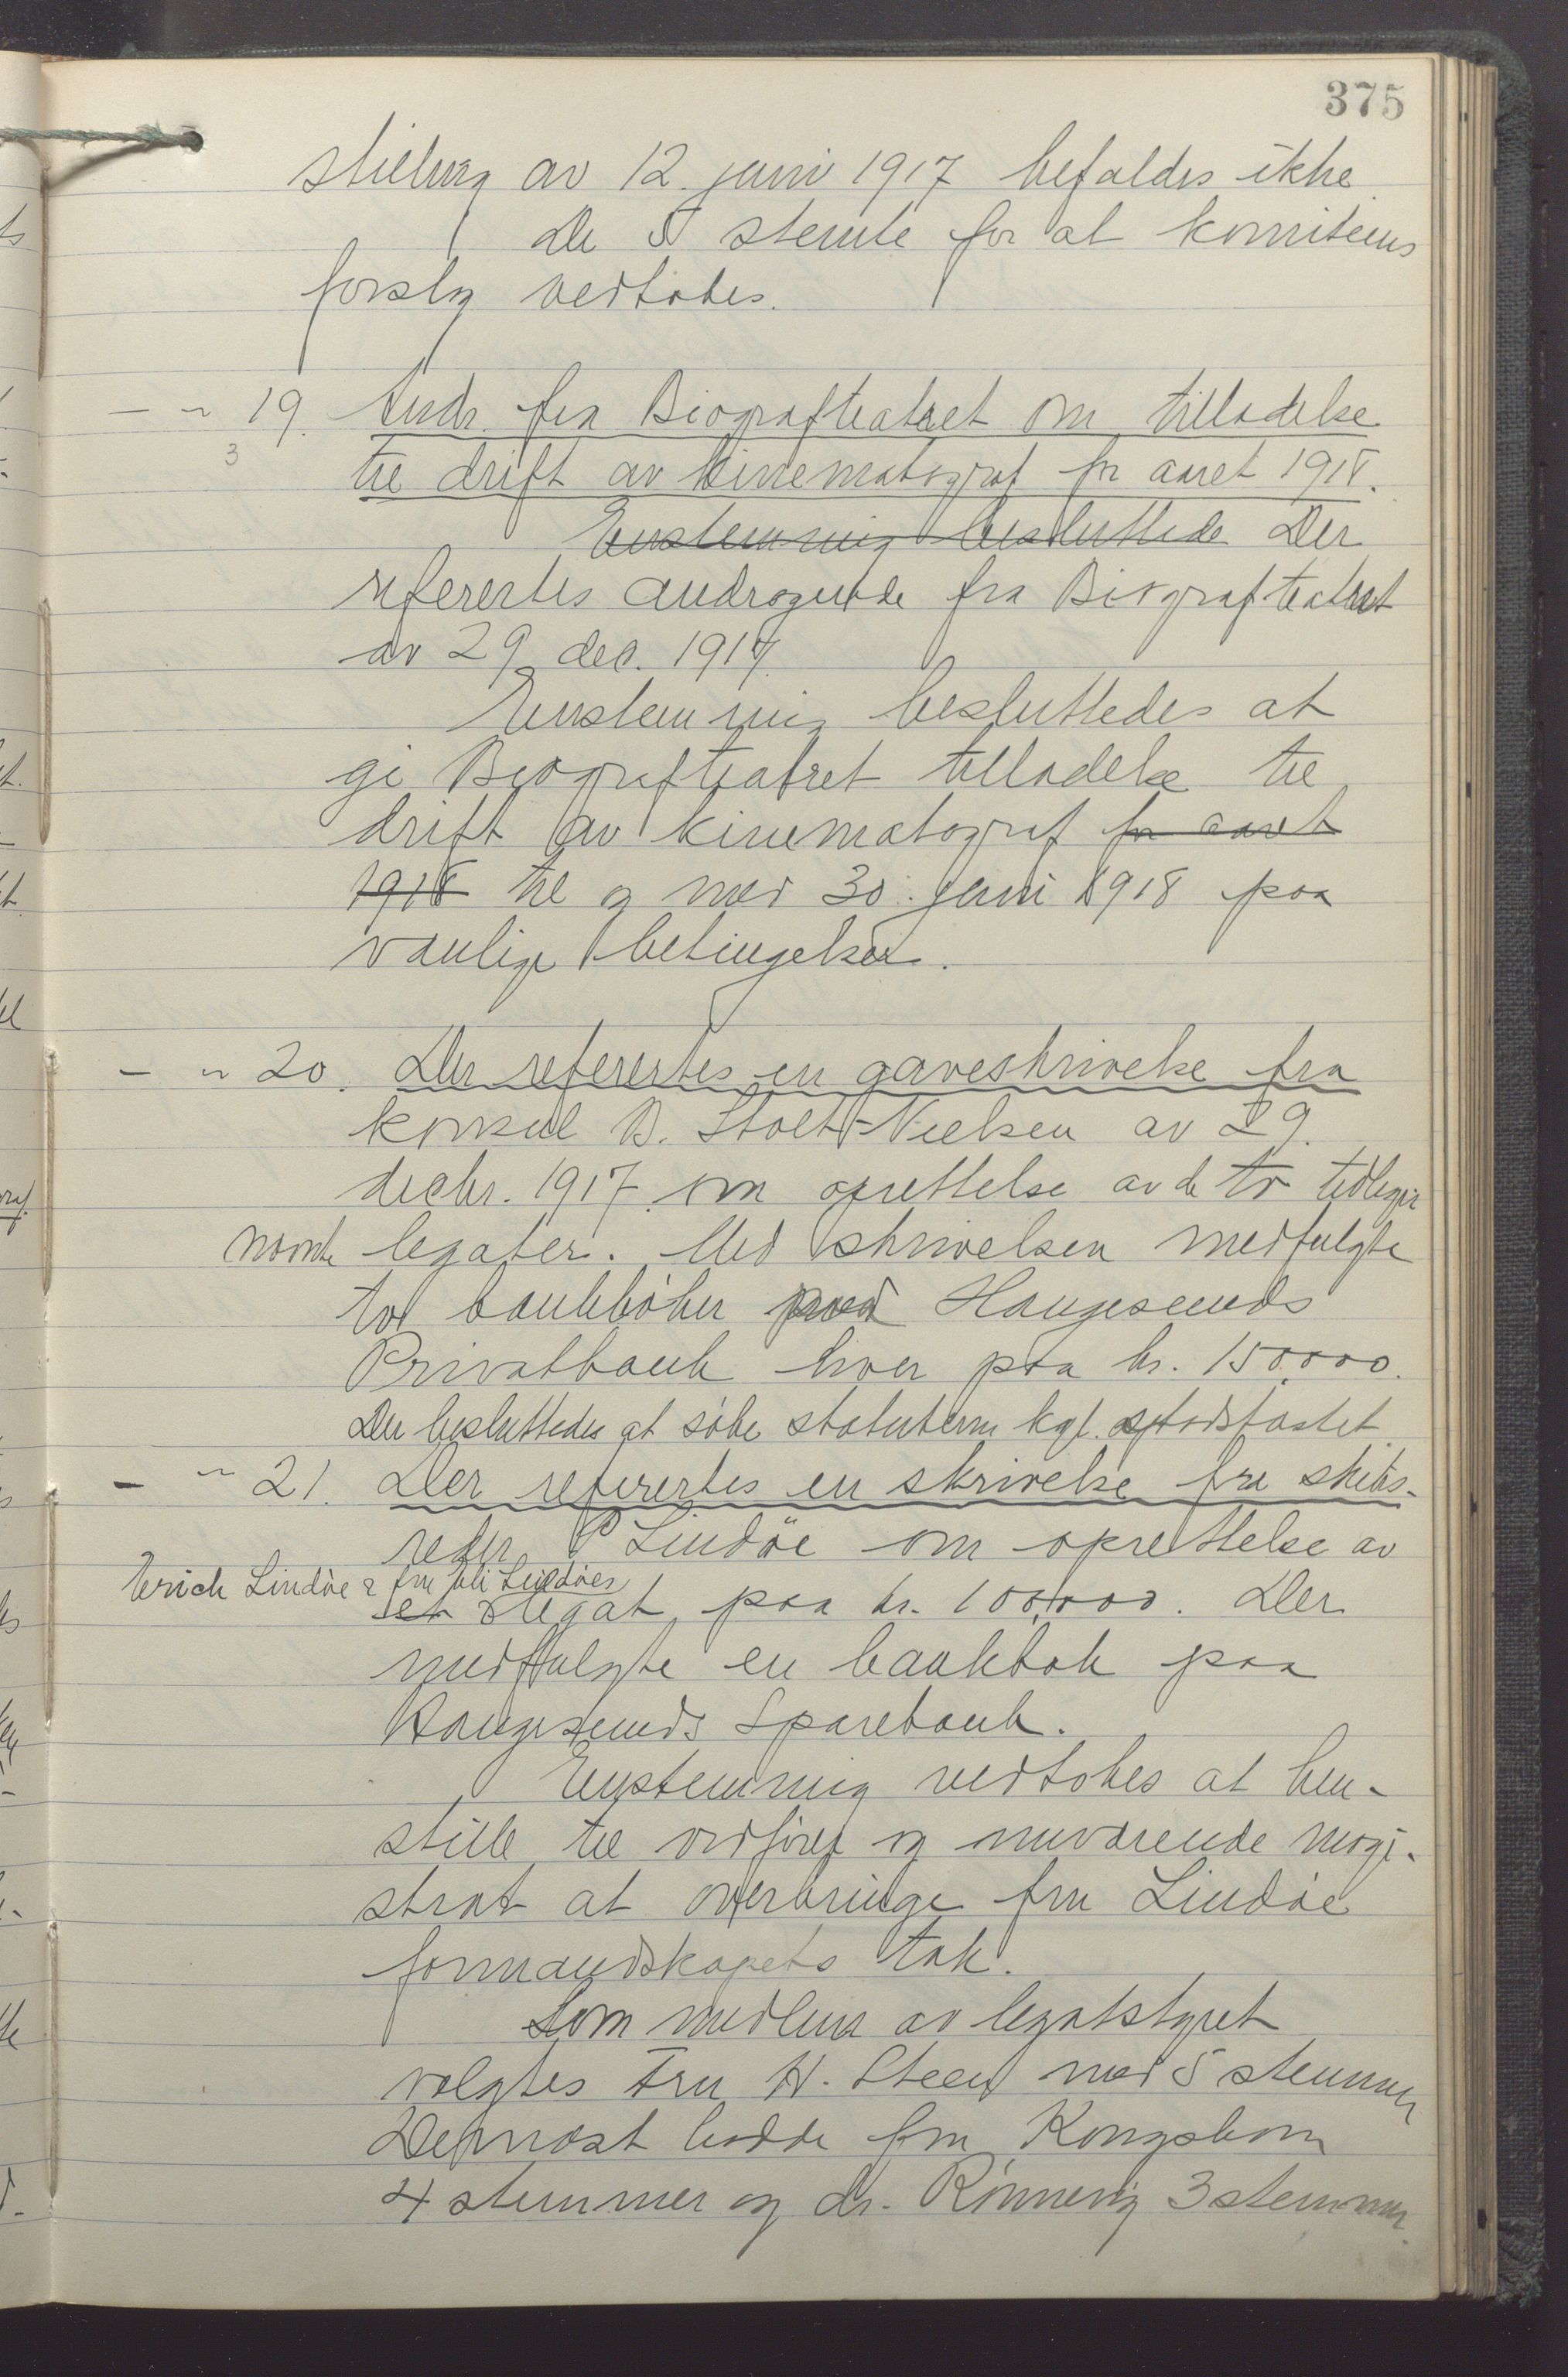 375
stilling av 12. juni 1917 befaldes ikke.
De 5 stemte for at komiteens
forslag vedtokes.
— " 19. Andr. fra Biografteatret om tilladelse
3
til drift av kinematograf for aaret 1918.
Enstemmig besluttede Der
referertes andragende fra Biografteatret
av 29 dec. 1917.
Enstemmig besluttedes at
gi Biografteatret tilladelse til
drift av kinematograf for aaret
1918 til og med 30. juni 1918 paa
vanlige betingelser.
— " 20. Der referertes en gaveskrivelse fra
konsul B. Stolt-Nielsen av 29.
decbr. 1917 om oprettelse av de to tidligere
nævnte legater. Med skrivelsen medfulgte
to bankbøker paa Haugesunds
Privatbank hver paa kr. 150,000.
Der besluttedes at søke statuterne kgl. stadfæstet.
— " 21. Der referertes en skrivelse fra skibs-
reder P Lindøe om oprettelse av
Erich Lindøe & fru Lindøes
et legat paa kr. 100,000. Der
medfulgte en bankbok paa
Haugesunds Sparebank.
Enstemmig vedtokes at hen-
stille til ordfører og nuværende magi-
strat at overbringe fru Lindøe
formandskapets tak.
Som medlem av legatstyret
valgtes Fru H. Steen med 5 stemmer
Dernæst hadde fru Kongshavn
4 stemmer og dr. Rønnevig 3 stemmer.